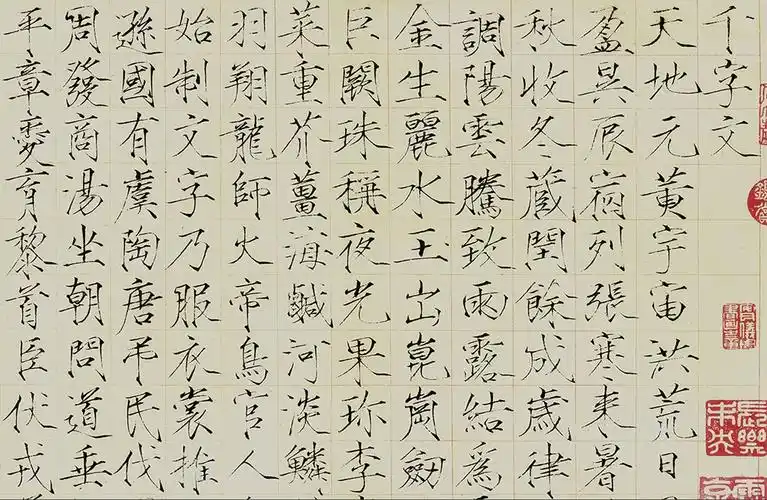 千字文
天地元黃宇宙洪荒日
盈昃辰宿列張寒来暑
秋收冬蔵閏餘成歲律
調陽雲騰致雨露結爲
金生麗水玉出崑崗劒
巨闕珠稱夜光果珎李
菜重芥薑海鹹河淡鱗
羽翔龍師火帝鳥官人
始制文字乃服衣裳推
遜國有虞陶唐弔民伐
周發商湯坐朝問道垂
平章愛育黎首臣伏戎